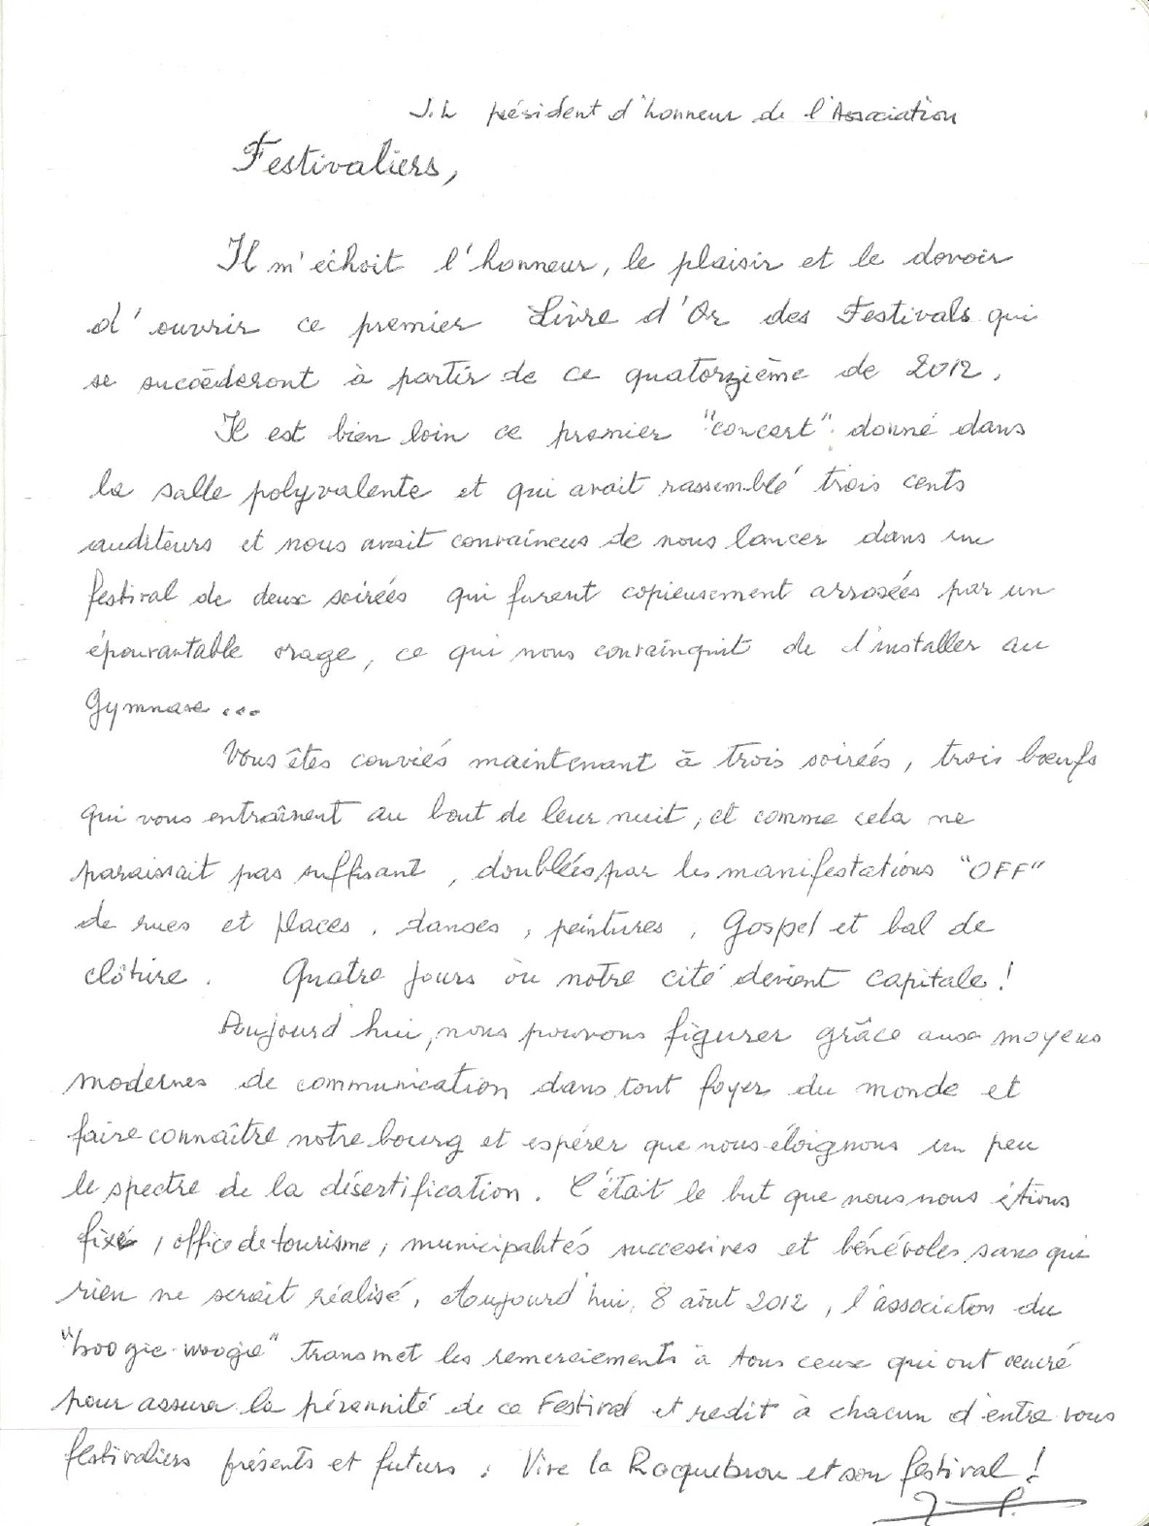 J.L président d'honneur de l'Association
Festivaliers,
Il m'échoit l'honneur, le plaisir et le devoir
d'ouvrir ce premier Livre d'Or des Festivals qui
se succèderont à partir de ce quatorzième de 2012.
Il est bien loin ce premier "concert" donné dans
la salle polyvalente et qui avait rassemblé trois cents
auditeurs et nous avait convaincus de nous lancer dans un
festival de deux soirées qui furent copieusement arrosées par un
épouvantable orage, ce qui nous convainquit de l'installer au
Gymnase...
Vous êtes conviés maintenant à trois soirées, trois bœufs
qui vous entraînent au bout de leur nuit, et comme cela ne
paraissait pas suffisant, doublées par les manifestations "OFF"
de rues et places, danses, peintures, Gospel et bal de
clôture. Quatre jours où notre cité devient capitale!
Aujourd'hui, nous pouvons figurer grâce aux moyens
modernes de communication dans tout foyer du monde et
faire connaître notre bourg et espérer que nous éloignons un peu
le spectre de la désertification. C'était le but que nous nous étions
fixé, office de tourisme, municipalités successives et bénévoles sans qui
rien ne serait réalisé. Aujourd'hui, 8 août 2012, l'association du
"boogie-woogie" transmet les remerciements à tous ceux qui ont œuvré
pour assurer la pérennité de ce Festival et redit à chacun d'entre vous
festivaliers présents et futurs : Vive la Roquebrou et son festival!